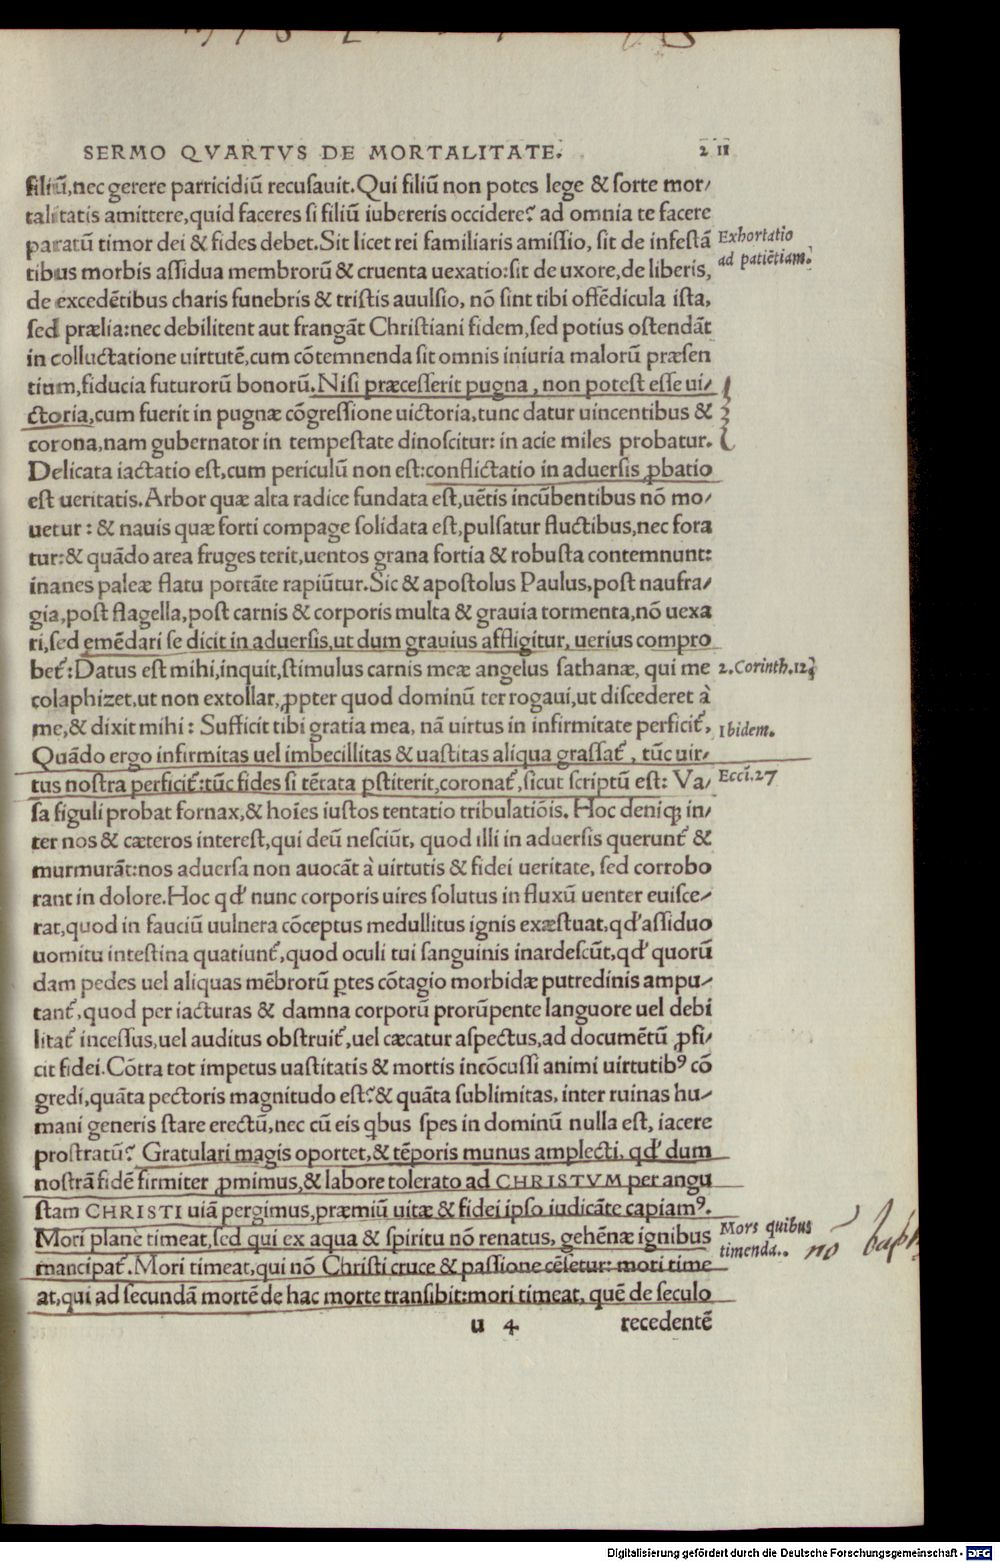 SERMO QVARTVS DE MORTALITATE. 211
filiū,nec gerere parricidiū recusauit.Qui filiū non potes lege & sorte mor/
talitatis amittere,quid faceres si filiū iubereris occidere? ad omnia te facere
paratū timor dei & fides debet.Sit licet rei familiaris amissio, sit de infestā
Exhortatio
tibus morbis assidua membrorū & cruenta uexatio:sit de uxore,de liberis,
ad patiētiam.
de excedētibus charis funebris & tristis auulsio, nō sint tibi offēdicula ista,
sed prælia:nec debilitent aut frangāt Christiani fidem,sed potius ostendāt
in colluctatione uirtutē,cum cōtemnenda sit omnis iniuria malorū præsen
tium,fiducia futurorū bonorū.Nisi præcesserit pugna, non potest esse ui/
ctoria,cum fuerit in pugnæ cōgressione uictoria,tunc datur uincentibus &
corona,nam gubernator in tempestate dinoscitur: in acie miles probatur.
Delicata iactatio est,cum periculū non est:conflictatio in aduersis ꝓbatio
est ueritatis.Arbor quæ alta radice fundata est,uētis incūbentibus nō mo/
uetur: & nauis quæ forti compage solidata est,pulsatur fluctibus,nec fora
tur:& quādo area fruges terit,uentos grana fortia & robusta contemnunt:
inanes paleæ flatu portāte rapiūtur.Sic & apostolus Paulus,post naufra/
gia,post flagella,post carnis & corporis multa & grauia tormenta,nō uexa
ri,sed emēdari se dicit in aduersis,ut dum grauius affligitur, uerius compro
bet᷑:Datus est mihi,inquit,stimulus carnis meæ angelus sathanæ, qui me
2.Corinth.12.
colaphizet,ut non extollar,ꝓpter quod dominū ter rogaui,ut discederet à
me,& dixit mihi: Sufficit tibi gratia mea, nā uirtus in infirmitate perficit᷑.
Ibidem.
Quādo ergo infirmitas uel imbecillitas & uastitas aliqua grassat᷑, tūc uir/
tus nostra perficit᷑:tūc fides si tētata ꝑstiterit,coronat᷑,sicut scriptū est: Va/
Ecci.27
sa figuli probat fornax,& hoīes iustos tentatio tribulatiōis. Hoc deniqꝫ in/
ter nos & cæteros interest,qui deū nesciūt, quod illi in aduersis querunt᷑ &
murmurāt:nos aduersa non auocāt à uirtutis & fidei ueritate, sed corrobo
rant in dolore.Hoc qd' nunc corporis uires solutus in fluxū uenter euisce/
rat,quod in fauciū uulnera cōceptus medullitus ignis exæstuat,qd'assiduo
uomitu intestina quatiunt᷑,quod oculi tui sanguinis inardescūt,qd' quorū
dam pedes uel aliquas mēbrorū ꝑtes cōtagio morbidæ putredinis ampu/
tant᷑,quod per iacturas & damna corporū prorūpente languore uel debi
litat᷑ incessus,uel auditus obstruit᷑,uel cæcatur aspectus,ad documētū ꝓfi/
cit fidei.Cōtra tot impetus uastitatis & mortis incōcussi animi uirtutibꝰ cō
gredi,quāta pectoris magnitudo est?& quāta sublimitas, inter ruinas hu/
mani generis stare erectū,nec cū eis qbus spes in dominū nulla est, iacere
prostratū? Gratulari magis oportet,& tēporis munus amplecti, qd' dum
nostrā fidē firmiter ꝓmimus,& labore tolerato ad CHRISTVM per angu
stam CHRISTI uiā pergimus,præmiū uitæ & fidei ipso iudicāte capiamꝰ.
Mori planè timeat,sed qui ex aqua & spiritu nō renatus, gehēnæ ignibus
Mors quibus
timenda..
nō
mancipat᷑.Mori timeat,qui nō Christi cruce & passione cēsetur: mori time
at,qui ad secundā mortē de hac morte transibit:mori timeat, quē de seculo
u 4 recedentē
Digitalisierung gefördert durch die Deutsche Forschungsgemeinschaft - DFG